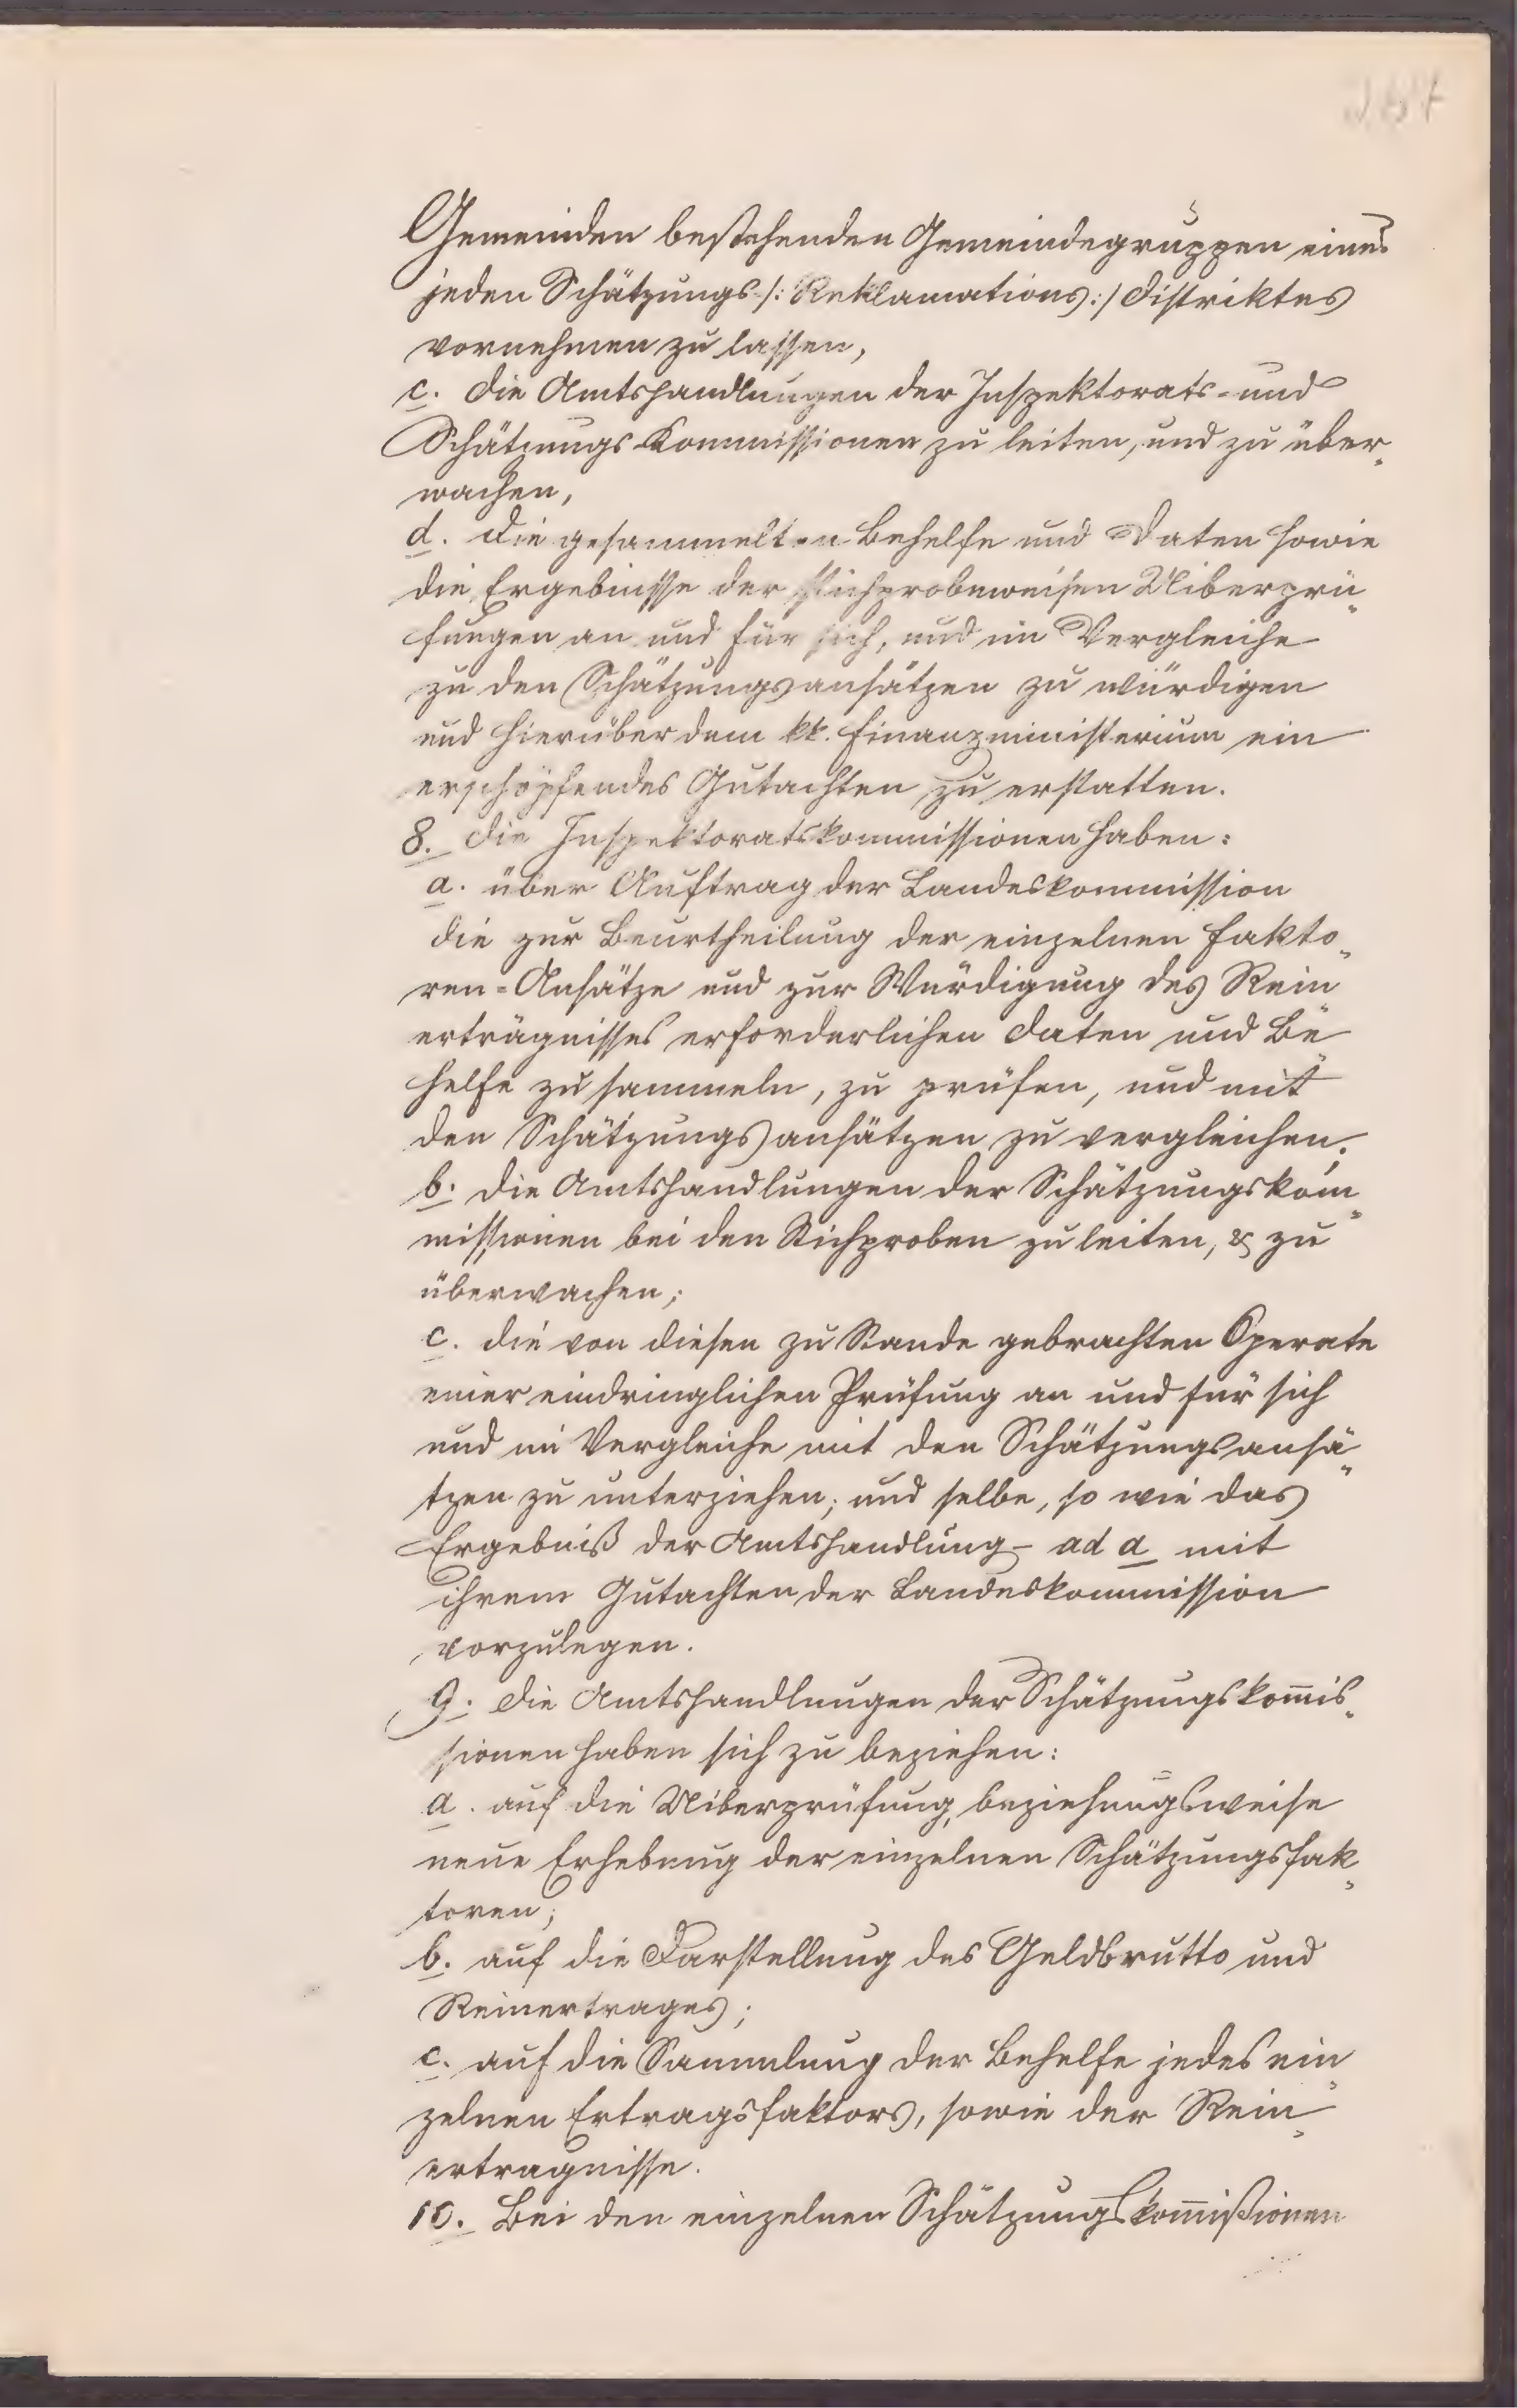 Gemeinden bestehenden Gemeindegruppen eines
jeden Schätzungs /: Reklamations :/ distriktes
vornehmen zu lassen,
c. die Amtshandlungen der Inspektorats- und
Schätzungs-Kommissionen zu leiten, und zu über„
wachen,
d. die gesammelten Behelfe und Daten sowie
die Ergebnisse der stichprobeweisen Uiberprü„
fungen an und für sich, und im Vergleiche
zu den Schätzungsansätzen zu würdigen
und hierüber dem kk. Finanzministerium ein
erschöpfendes Gutachten zu erstatten.
8. die Inspektoratskommissionen haben:
a. über Auftrag der Landeskommission
die zur Beurtheilung der einzelnen Fakto„
ren-Ansätze und zur Würdigung des Rein„
erträgnisses erforderlichen Daten und Be„
helfe zu sammeln, zu prüfen, und mit
den Schätzungsansätzen zu vergleichen;
b. die Amtshandlungen der Schätzungskom„
missionen bei den Stichproben zu leiten, & zu
überwachen;
c. die von diesen zu Stande gebrachten Operate
einer eindringlichen Prüfung an und für sich
und im Vergleiche mit den Schätzungsansä„
tzen zu unterziehen; und selbe, so wie das
Ergebniß der Amtshandlung ad a mit
ihrem Gutachten der Landeskommission
vorzulegen.
9. die Amtshandlungen der Schätzungskom̅is„
sionen haben sich zu beziehen:
a. auf die Uiberprüfung, beziehungsweise
neue Erhebung der einzelnen Schätzungsfak„
toren;
b. auf die Darstellung des Geldbrutto und
Reinertrages;
c. auf die Sammlung der Behelfe jedes ein„
zelnen Ertragsfaktors, sowie der Rein„
erträgnisse.
10. Bei den einzelnen Schätzungskom̅ißionen